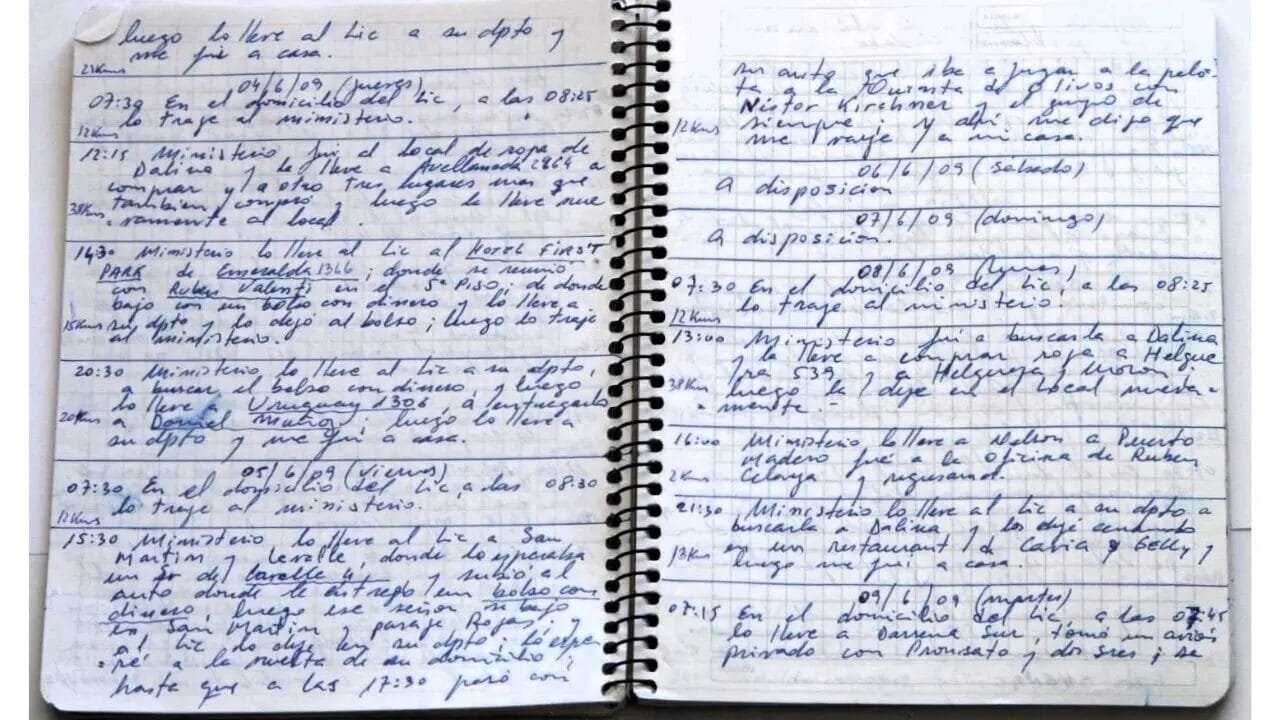 luego lo lleve al Lic a su dpto y
me fui a casa.
27Kms
04/6/09 (jueves)
07:30 En el domicilio del Lic, a las 08:25
lo traje al ministerio.
12Kms
12:15 Ministerio fui al local de ropa de
Dalina y la lleve a Avellaneda 2964 a
comprar y a otro tres lugares mas que
tambien compró y luego la lleve nue
38Kms
-vamente al local.
14:30 Ministerio lo lleve al Lic al HOTEL FIRST
PARK de Esmeralda 1366; donde se reunió
con Ruben Valenti en el 5º PISO; de donde
bajo con un bolso con dinero y lo lleve a
15Kms su dpto y lo dejó al bolso; luego lo traje
al ministerio.
20:30 Ministerio lo lleve al Lic a su dpto,
a buscar el bolso con dinero y luego
20Kms lo lleve a Uruguay 1306, a entregarlo
a Daniel Muñoz; luego lo lleve a
su dpto y me fui a casa.
05/6/09 (viernes)
07:30 En el domicilio del Lic, a las 08:30
lo traje al ministerio.
12Kms
15:30 Ministerio lo lleve al Lic a San
Martin y Lavalle, donde lo esperaba
un sr de Lavalle y subió al
auto donde le entregó un bolso con
dinero, luego ese señor se bajo
en San Martin y pasaje Rojas; y
al Lic lo deje en su dpto; lo espe
-ré a la vuelta de su domicilio;
hasta que a las 17:30 pasó con
su auto que iba a jugar a la pelo-
ta a la Quinta de Olivos con
Nestor Kirchner y el grupo de
12Kms siempre; y ahi me dijo que
me traje y a mi casa.
06/6/09 (sabado)
A disposicion
07/6/09 (domingo)
A disposicion.
08/6/09 (lunes)
07:30 En el domicilio del Lic, a las 08:25
lo traje al ministerio.
12Kms
13:00 Ministerio fui a buscarla a Dalina
y la lleve a comprar ropa a Helgue
ra 539 y a Helguera y Moron;
38Kms
luego la deje en el local nueva-
-mente.-
16:00 Ministerio lo lleve a Nelson a Puerto
Madero fué a la oficina de Ruben
2Kms y regresamos.
21:30 Ministerio lo lleve al Lic a su dpto a
buscarla a Dalina y los dejé cenando
en un restaurant de Cavia y Gelly y
13Kms
luego me fui a casa.
09/6/09 (martes)
07:15 En el domicilio del Lic, a las 07:45
lo lleve a Darsena Sur, tomó un avion
privado con y dos sres; se